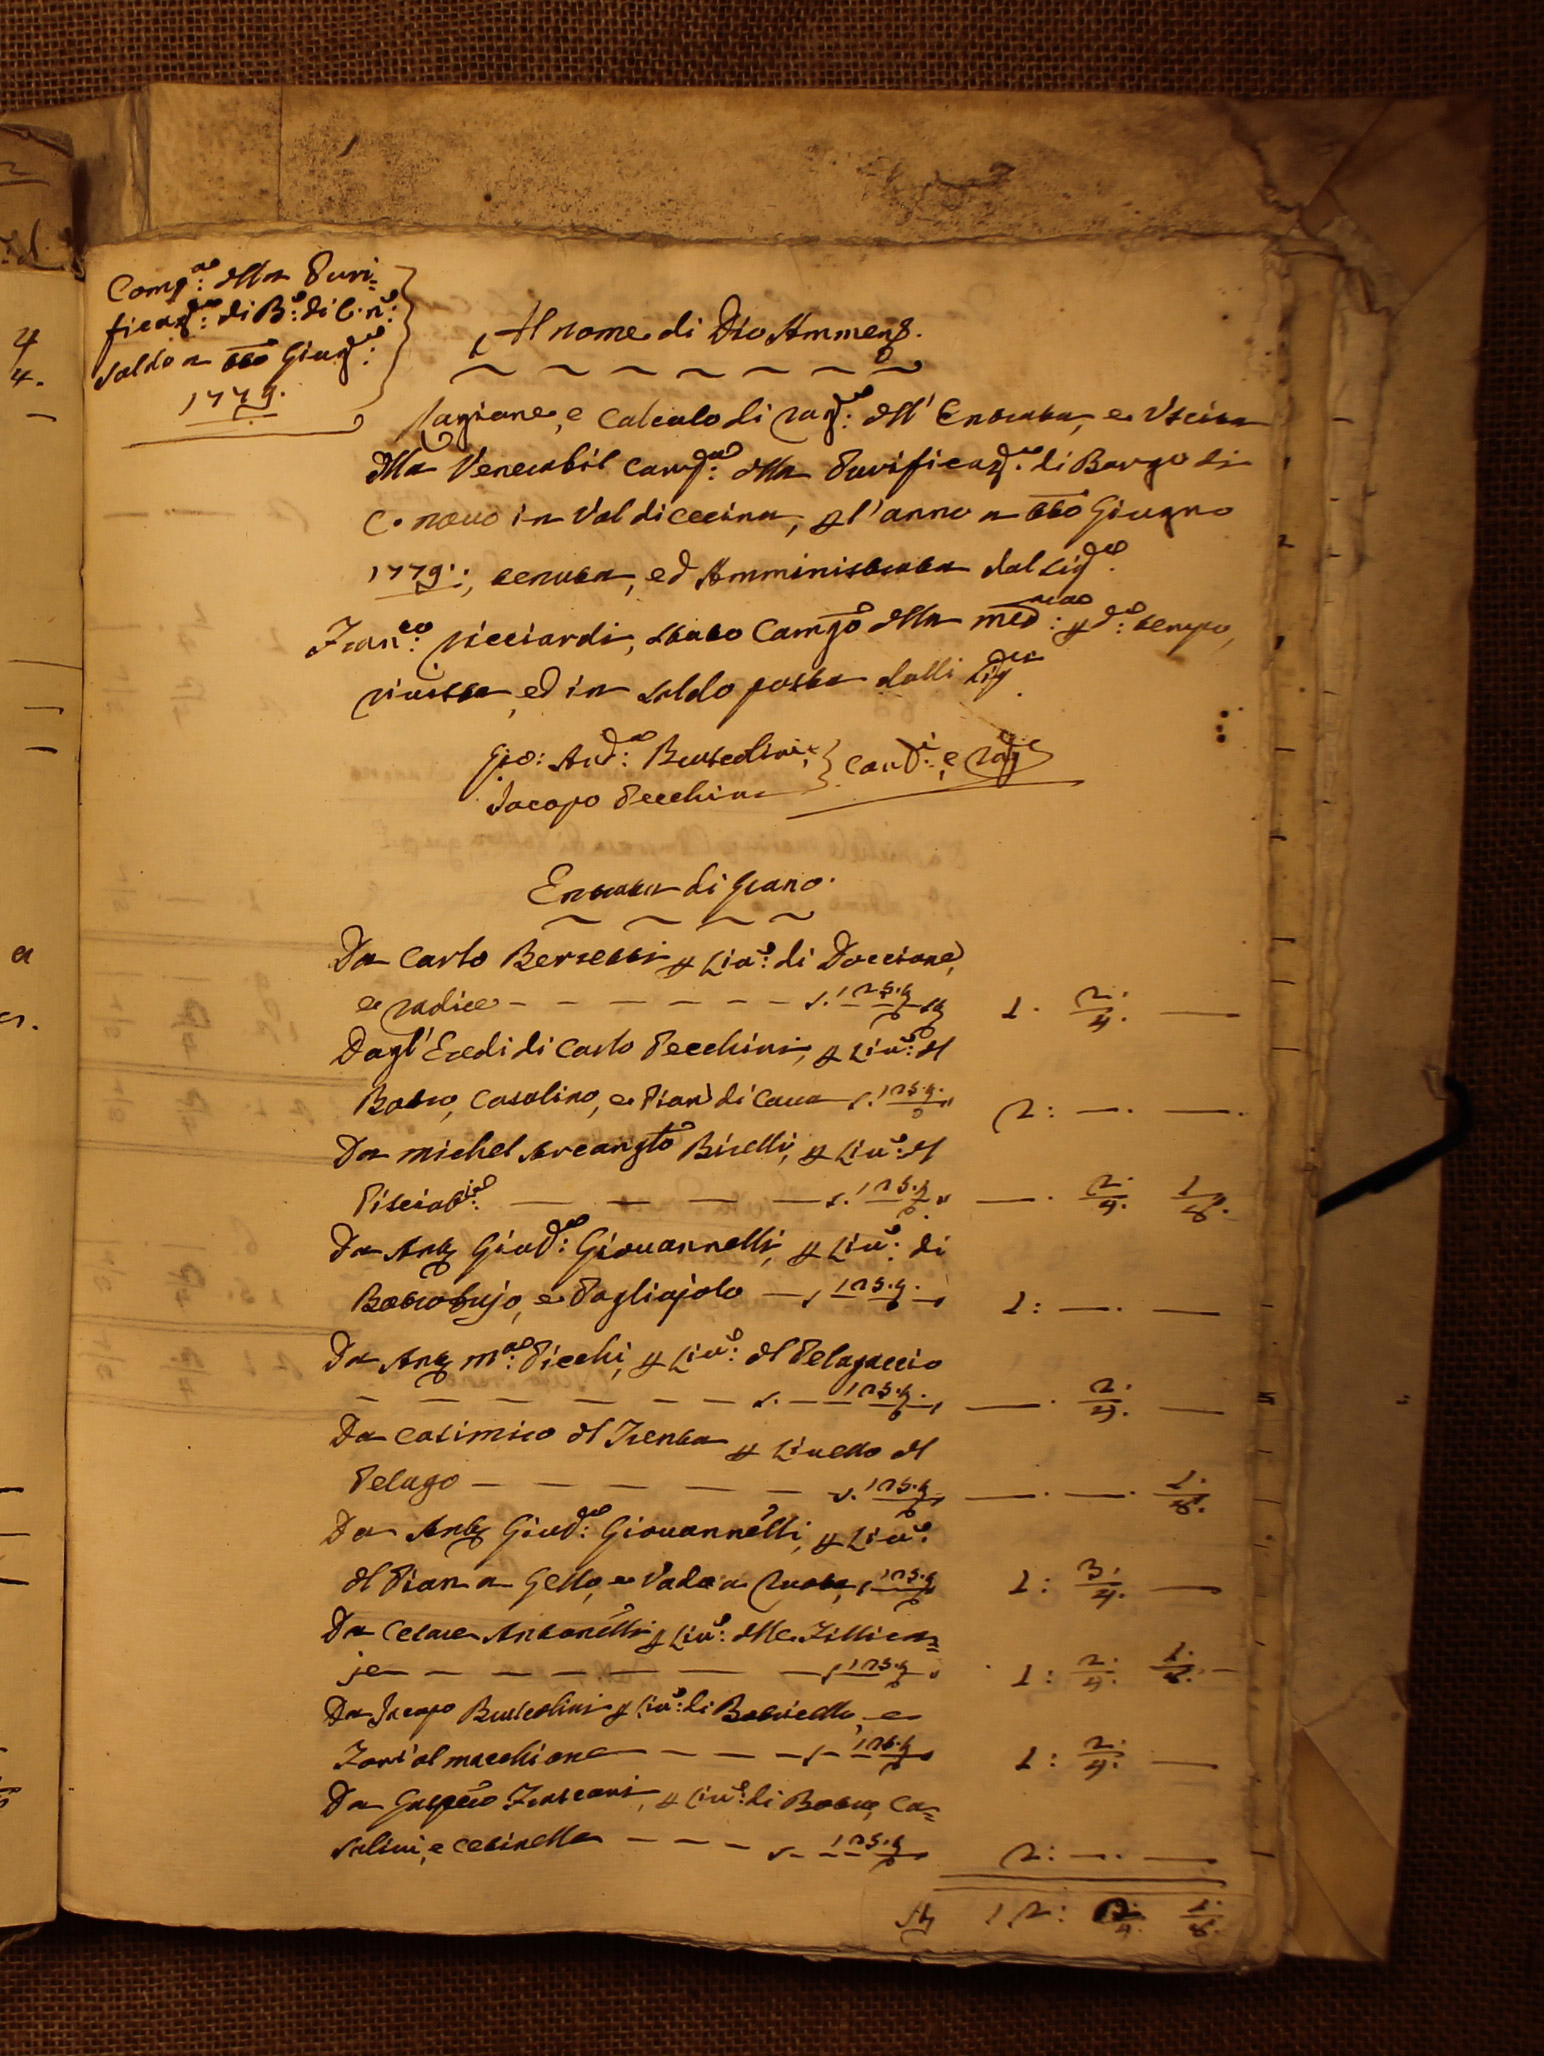 Comp.ª della Puri=
ficaz.ne: di B.º: di C. n.º:
saldo a tto Giug.º:
1779.
Al nome di Dio Ammen.
Ragione, e Calcolo di rag.ne: dell' Entrata, e Uscita
della Venerabil Comp.ª: della Purificaz.ne: di Borgo di
C. novo in Val di Cecina, p l'anno a tto Giugno
1779:, tenuta, ed Amministrata dal Sig.re
Fran.co: Ricciardi, stato Camg.º della med:ma p d.º: tempo,
rivista, ed in saldo posta dalli Sig.ri
Gio: And.ª: Bruscolini,
Jacopo Pecchini
} e Rag.ri
Entrata di Grano.
Da Carlo Bersetti p Liv.º: di Doccione,
e radice - - - - - - - 125.g 1. 2/4. —
Dagl' Eredi di Carlo Pecchini, p Liv.º: del
Botro, Casalino, e Pian di Cava 125.g. 2: —. —.
Da Michel Arcang.lo Bicelli, p Liv.º: del
— — — — 125.g —. 2/4. 1/8.
Da Ant.º Giud.: Giovannelli, p Liv.º: di
Botrobujo, e Pagliajolo — 125.g. 1: —. —
Da Ant.º M.ª: Picchi, p Liv.º: del Pelagaccio
— — — — — — — 125.g. —. 2/4. —
Da Casimiro del Trenta p Livello del
Pelago — — — — — — 125.g —. —. 1/8.
Da Ant.º Giud.: Giovannelli, p Liv.º:
del Pian a Gello, e Vado a 125.g 1: 3/4. —
Da Cesare Antonelli p Liv.º: delle Fillica=
je — — — — — — — 125.g 1: 2/4. 1/8. —
Da Jacopo Bruscolini p Liv.º: di Botricello, e
al macchione — — — — 125.g 1: 2/4. —
Da Gasp.ro Toscani, p Liv.º: di Botro, Ca=
salini, e Cetinella — — — 125.g 2: —. —
12: 2/4. 1/8.